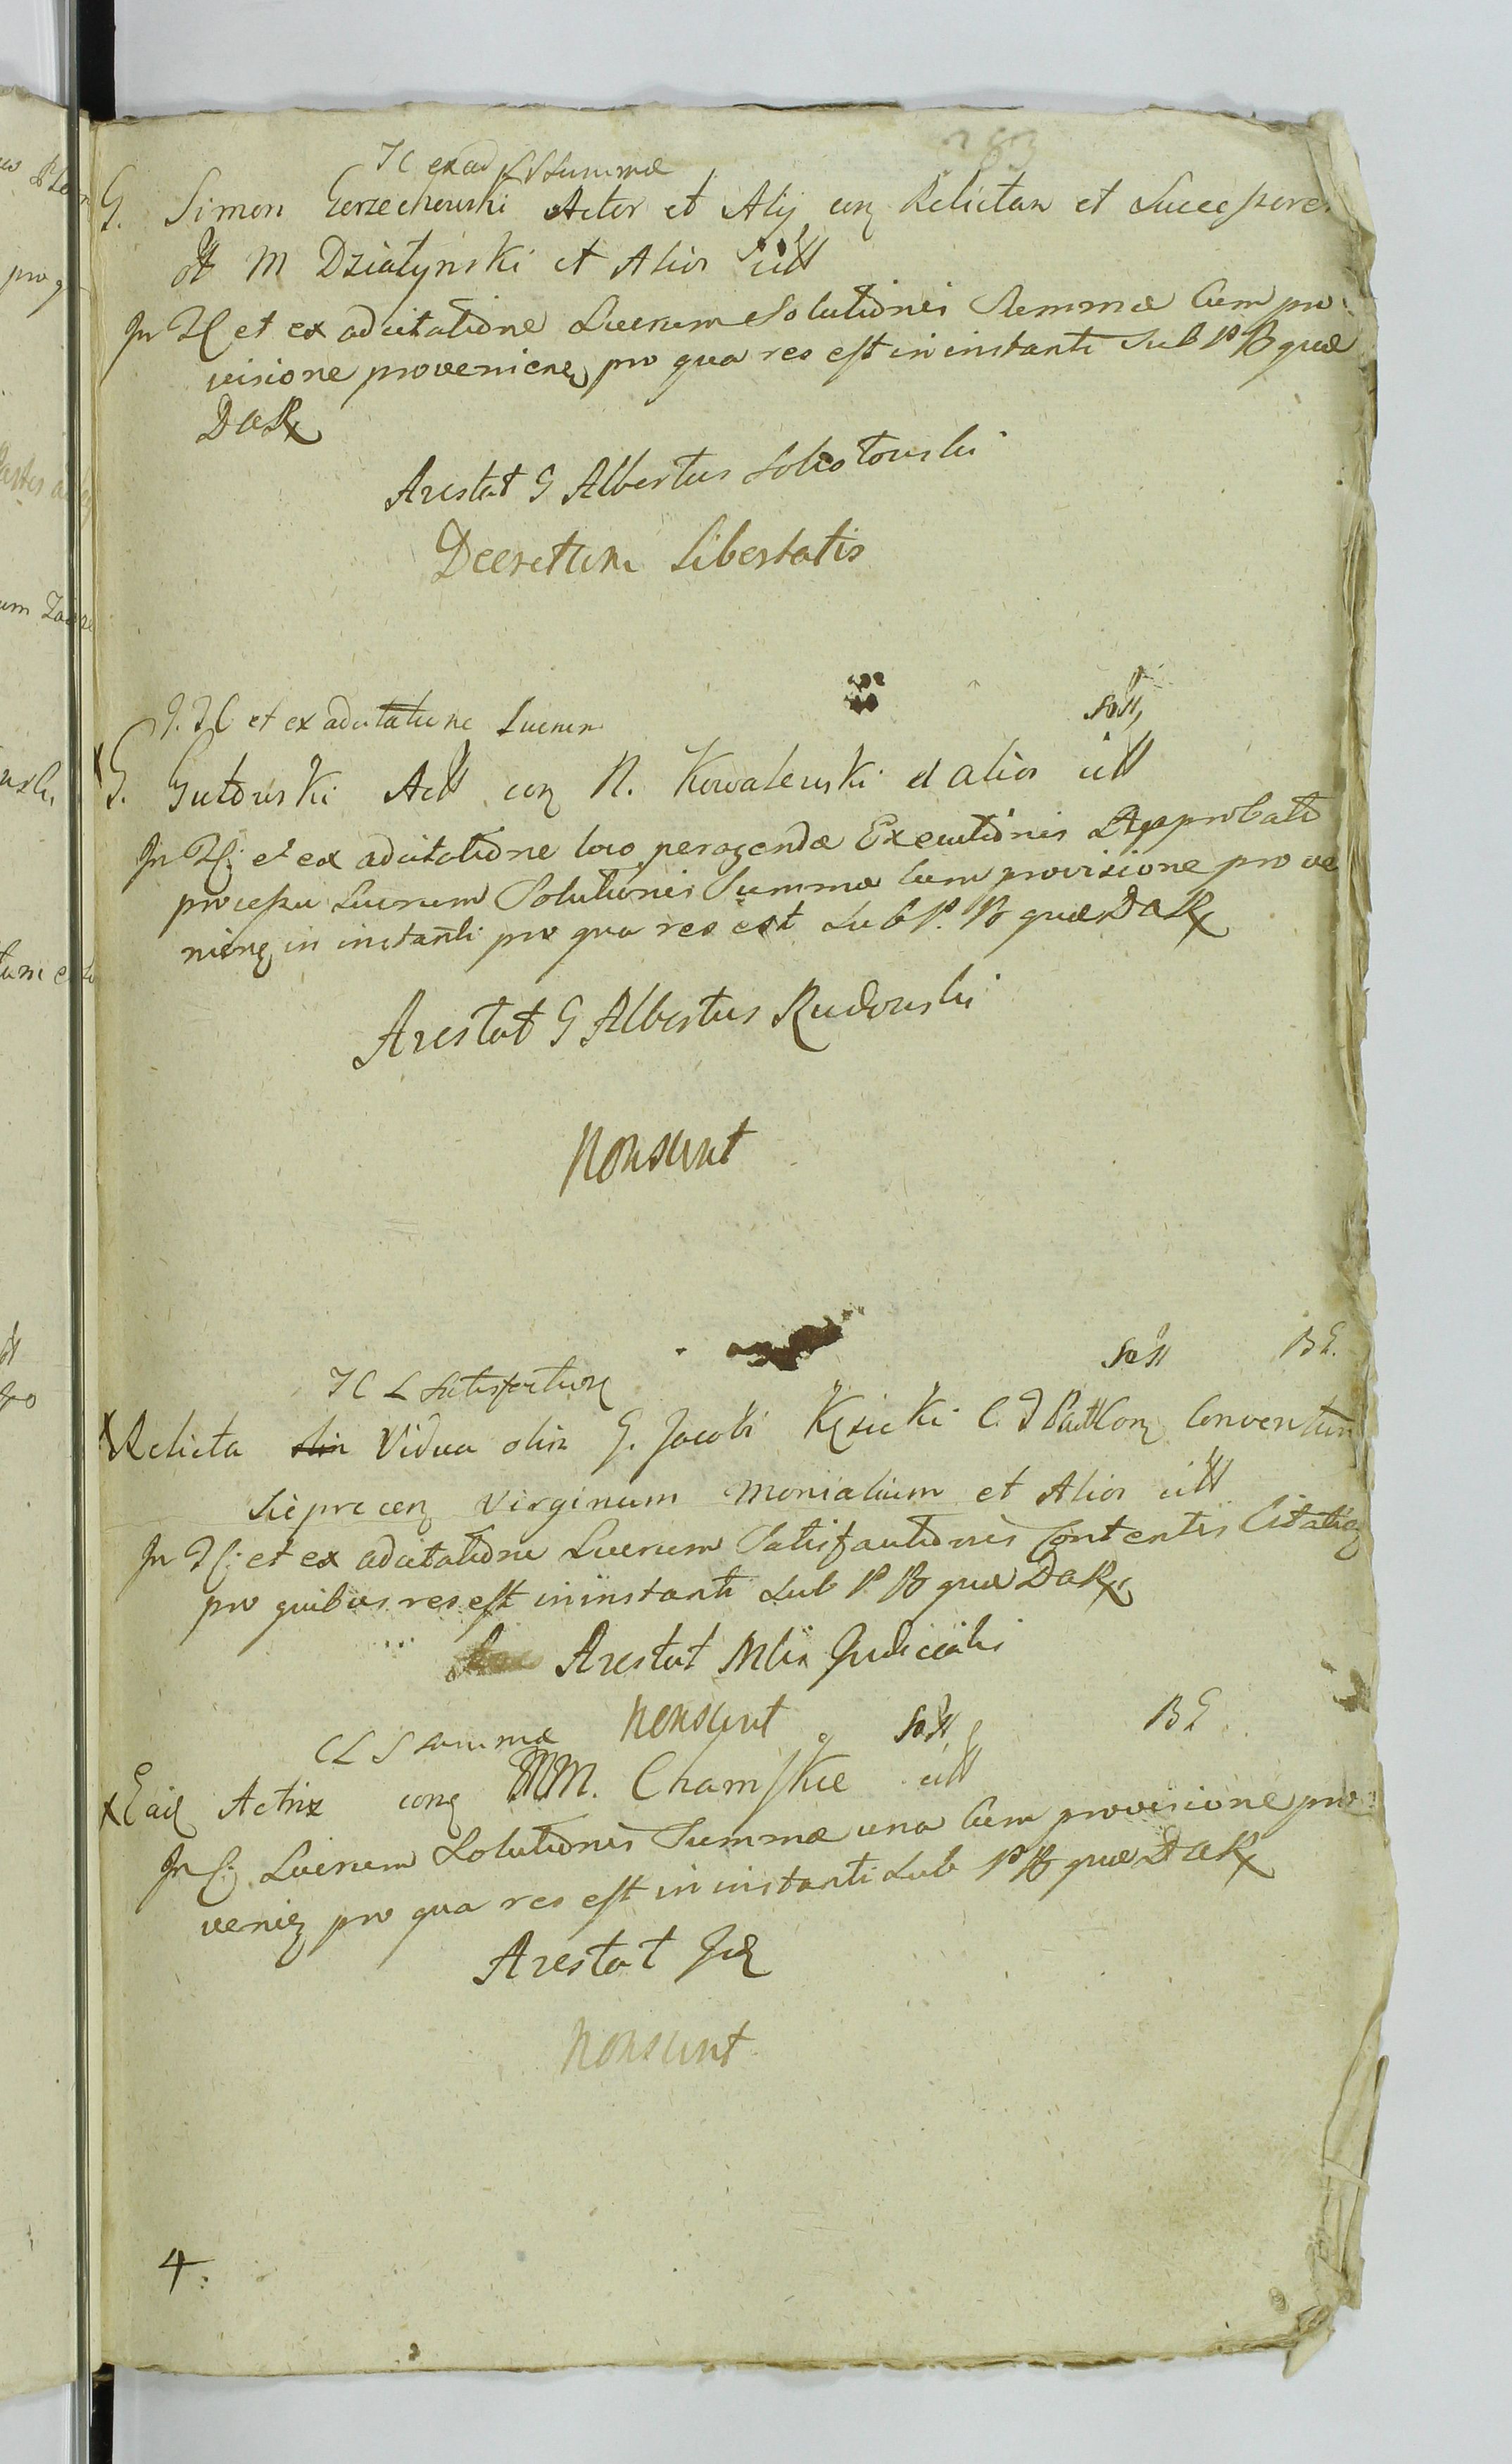 283
TC ex ad LS Summæ
G. Simon Gorzechowski Actor et Alij con Relictam et Successores
M Dziatynski et Alios citt
In TC et ex adcitatione Lucrum Solutionis Summæ Cum pro:
visione provenien pro qua res est in instanti Sub PB quæ
DaR
Arestat G Albertus Sokotowski
Decretum Libertatis
I. TC et ex adcitatione Lucrum
Sost
G. Gutowski Actt con N. Kowalewski et alios citt
In TC: et ex adcitatione loco peragendæ Executionis Approbatio
processu Lucrum Solutionis Summæ Cum provisione prove
nien in instanti pro qua res est Sub P. B quæ DaR
Arestat G Albertus Rudowski
Nonsunt
TC L Satisfactionem
Sost BE.
Relicta olin Vidua olin G. Jacobi Kęsicki C. J Pattcon Conventum
Sieprcen Virginum Monialium et Alios citt
In TC: et ex adcitatione Lucrum Satisfactionis Contentis Citatio
pro quibus res est in instanti Sub P B quæ DaR
Arestat Mlis Judicialis
Nonsunt
CL S Summæ
Sost BE.
Ead Actrix con MM. Chamskie citt
In C: Lucrum Solutionis Summæ una Cum provisione pro:
venien pro qua res est in instanti Sub PB quæ DaR
Arestat Id
Nonsunt
4: